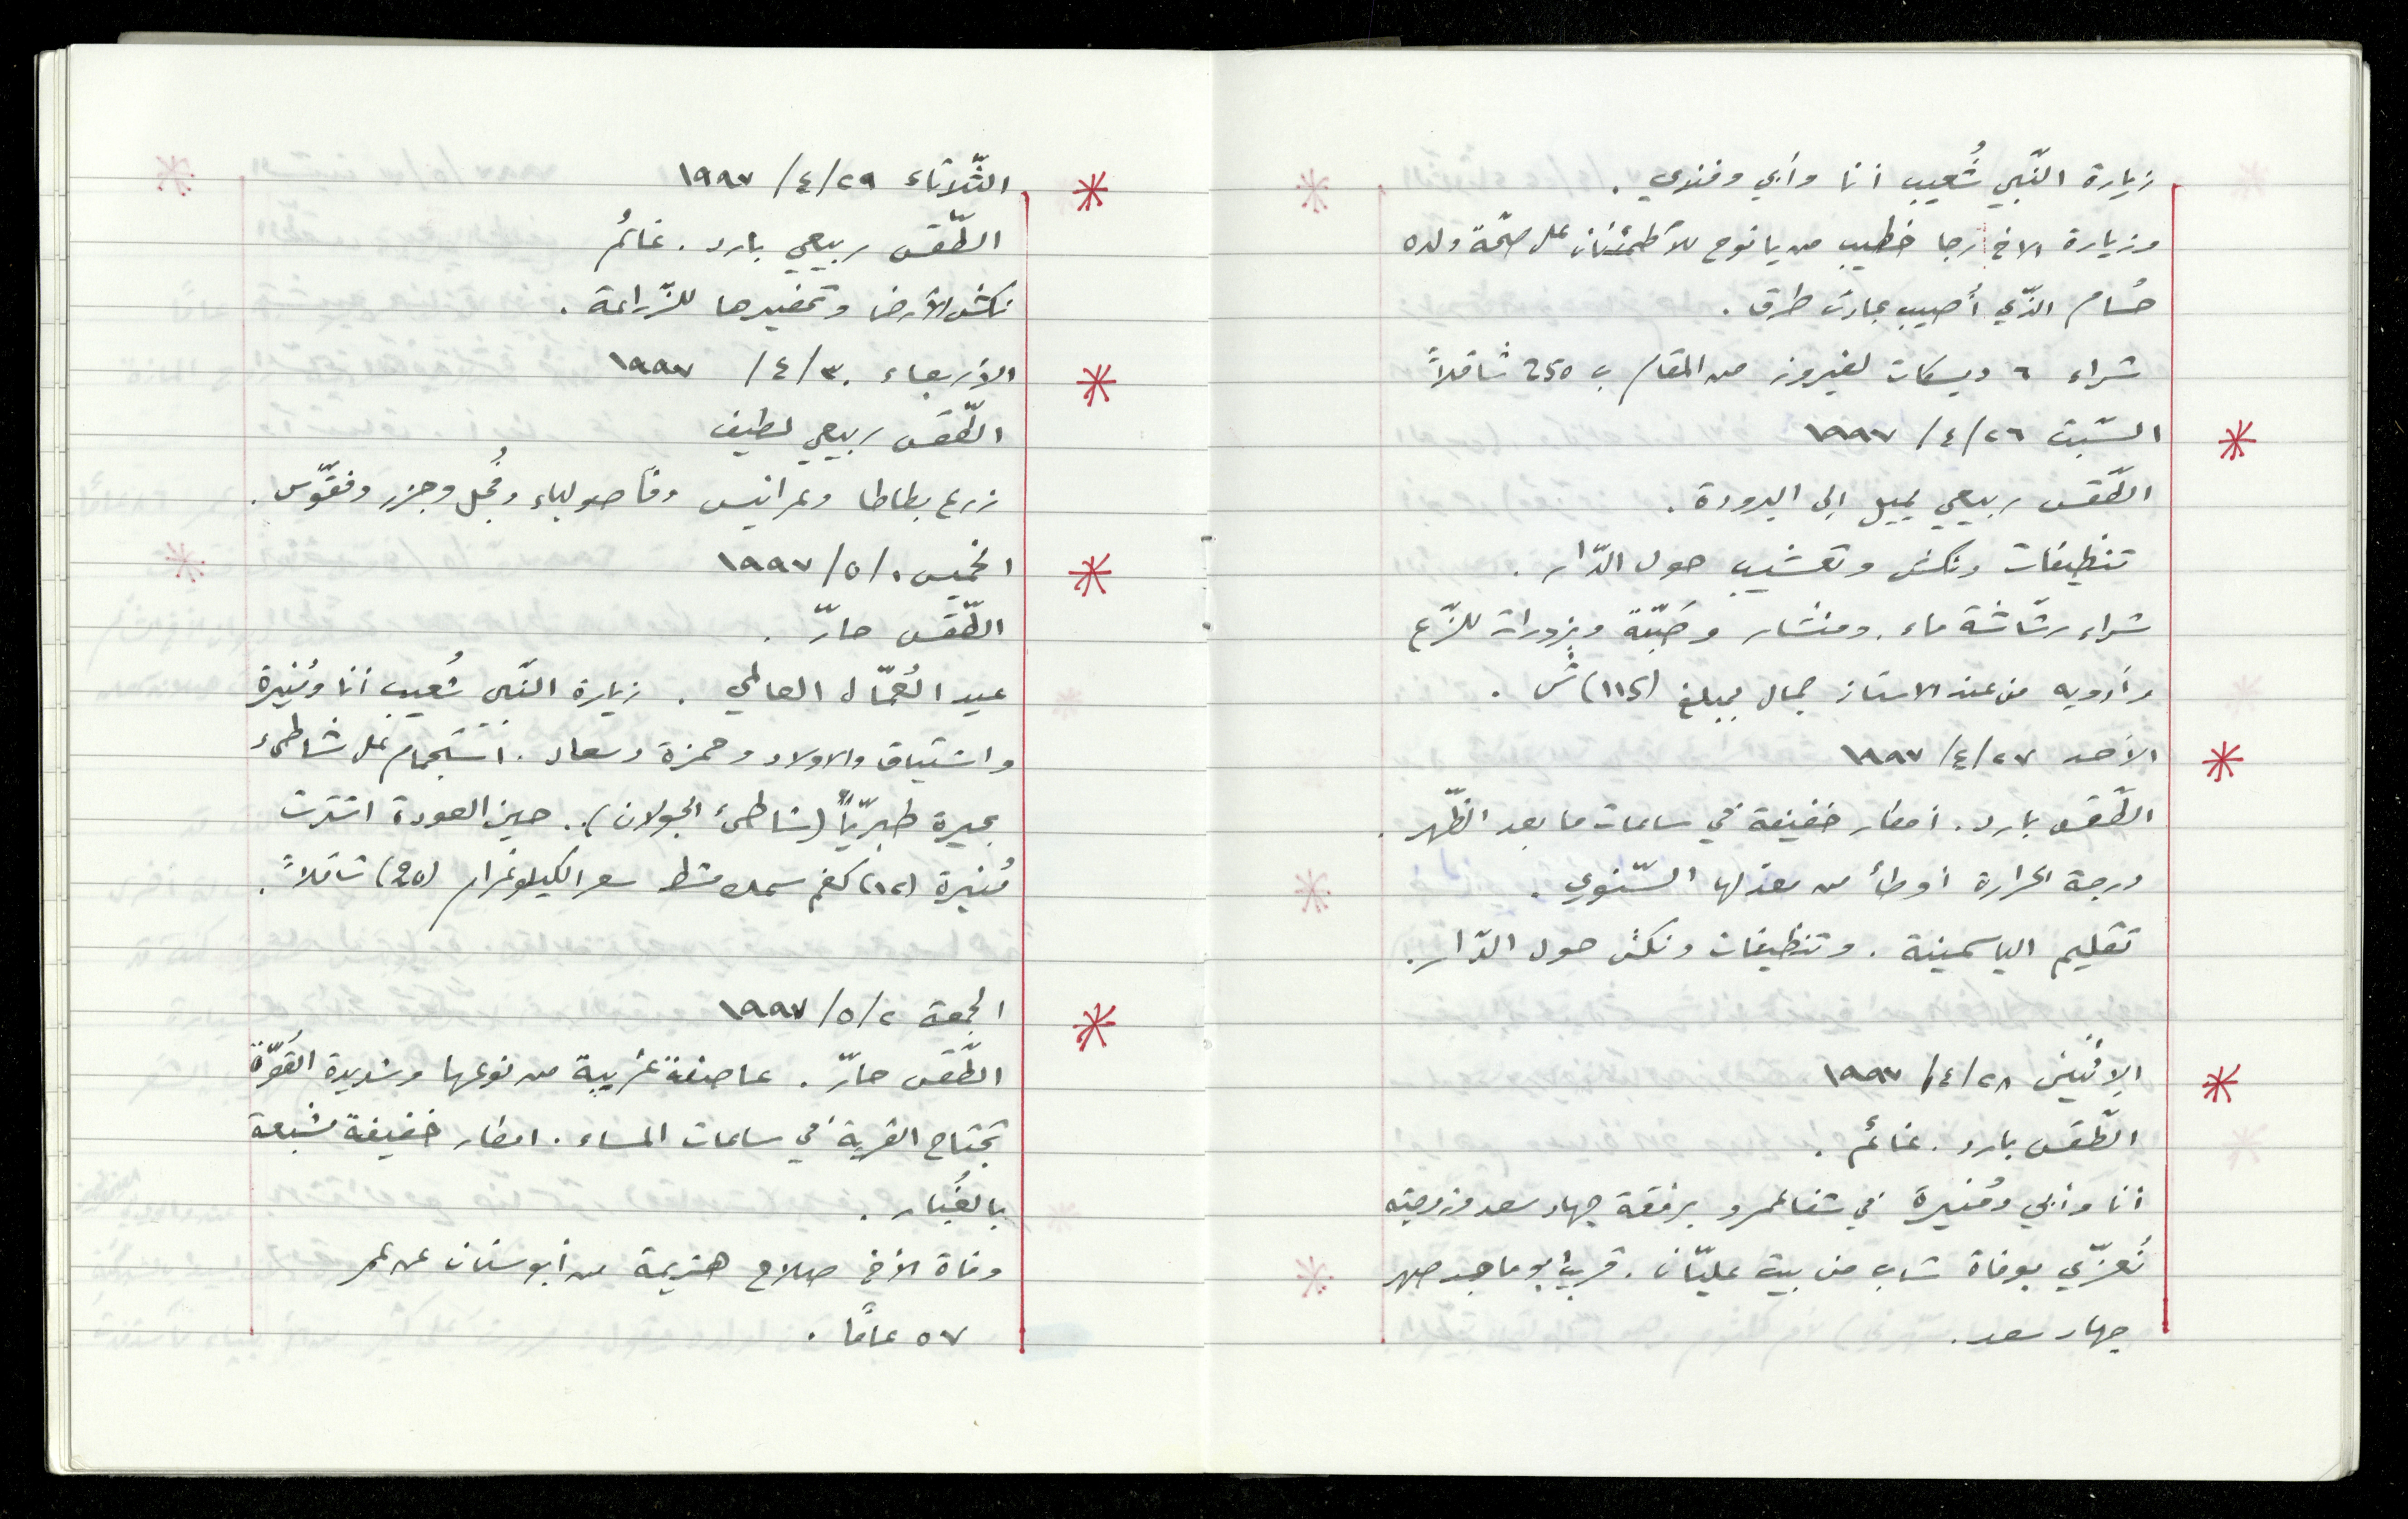 زيارة النّبي شُعيب أنا وأبي وفندي .
وزيارة الاخ رجا خطيب من يانوح للأطمئنان على صحّة ولده
حُسام الذّي أُصيب بحادث طرق .
شراء ٦ ديسكات لفيروز من المقام ب 250 شاقلاً
السّبت ٢٦/٤/١٩٩٧
الطّقس ربيعي يميل إلى البرودة .
تنظيفات ونكش وتعشيب حول الدّار .
شراء رشّاشة ماء . ومنشار وحَبّة وبزورات للزّرع
وأدويه من عند الاستاذ جمال بمبلغ (١١٢) ش .
الأحد ٢٧/٤/١٩٩٧
الطّقس بارد . أمطار خفيفة في ساعات ما بعد الظّهر .
درجة الحرارة أوطأ من معدلها السّنوي .
تقليم الياسمينة . وتنظيفات ونكش حول الدّار .
الإثنين ٢٨/٤/١٩٩٧
الطّقس بارد . غائم .
أنا وأبي ومُنيرة في شفاعمرو برفقة جهاد سعد وزوجته
نُعزّي بوفاة شاب من بيت عليّان . قريب أبو ماجد صهر
جهاد سعد .
الثّلاثاء ٢٩/٤/١٩٩٧
الطّقس ربيعي بارد . غائمُ
نكش الأرض وتحضيرها للزّراعة .
الأربعاء ٣٠/٤/١٩٩٧
الطّقس ربيعي لطيف
زرع بطاطا وعرانيس وفاصولياء وفُجل وجزر وفقّوس .
الخميس ١/٥/١٩٩٧
الطّقس حارّ .
عيد العُمّال العالمي . زيارة النّبي شُعيب أنا ومُنيرة
واشتياق والاولاد وحمزة وسعاد . استجمام على شاطىء
بحيرة طبريّا (شاطئ الجولان) . حين العودة اشترت
مُنيرة (١٢) كغم سمك مشط سعر الكيلوغرام (٢٥) شاقلاً .
الجمعة ٢/٥/١٩٩٧
الطّقس حارّ . عاصفة غريبة من نوعها وشديدة القُوّة
تجتاح القرية في ساعات المساء . امطار خفيفة مشبعة
بالغُبار .
وفاة الأخ صلاح هزيمة من أبوسنان عن عمر
٥٧ عامًا .